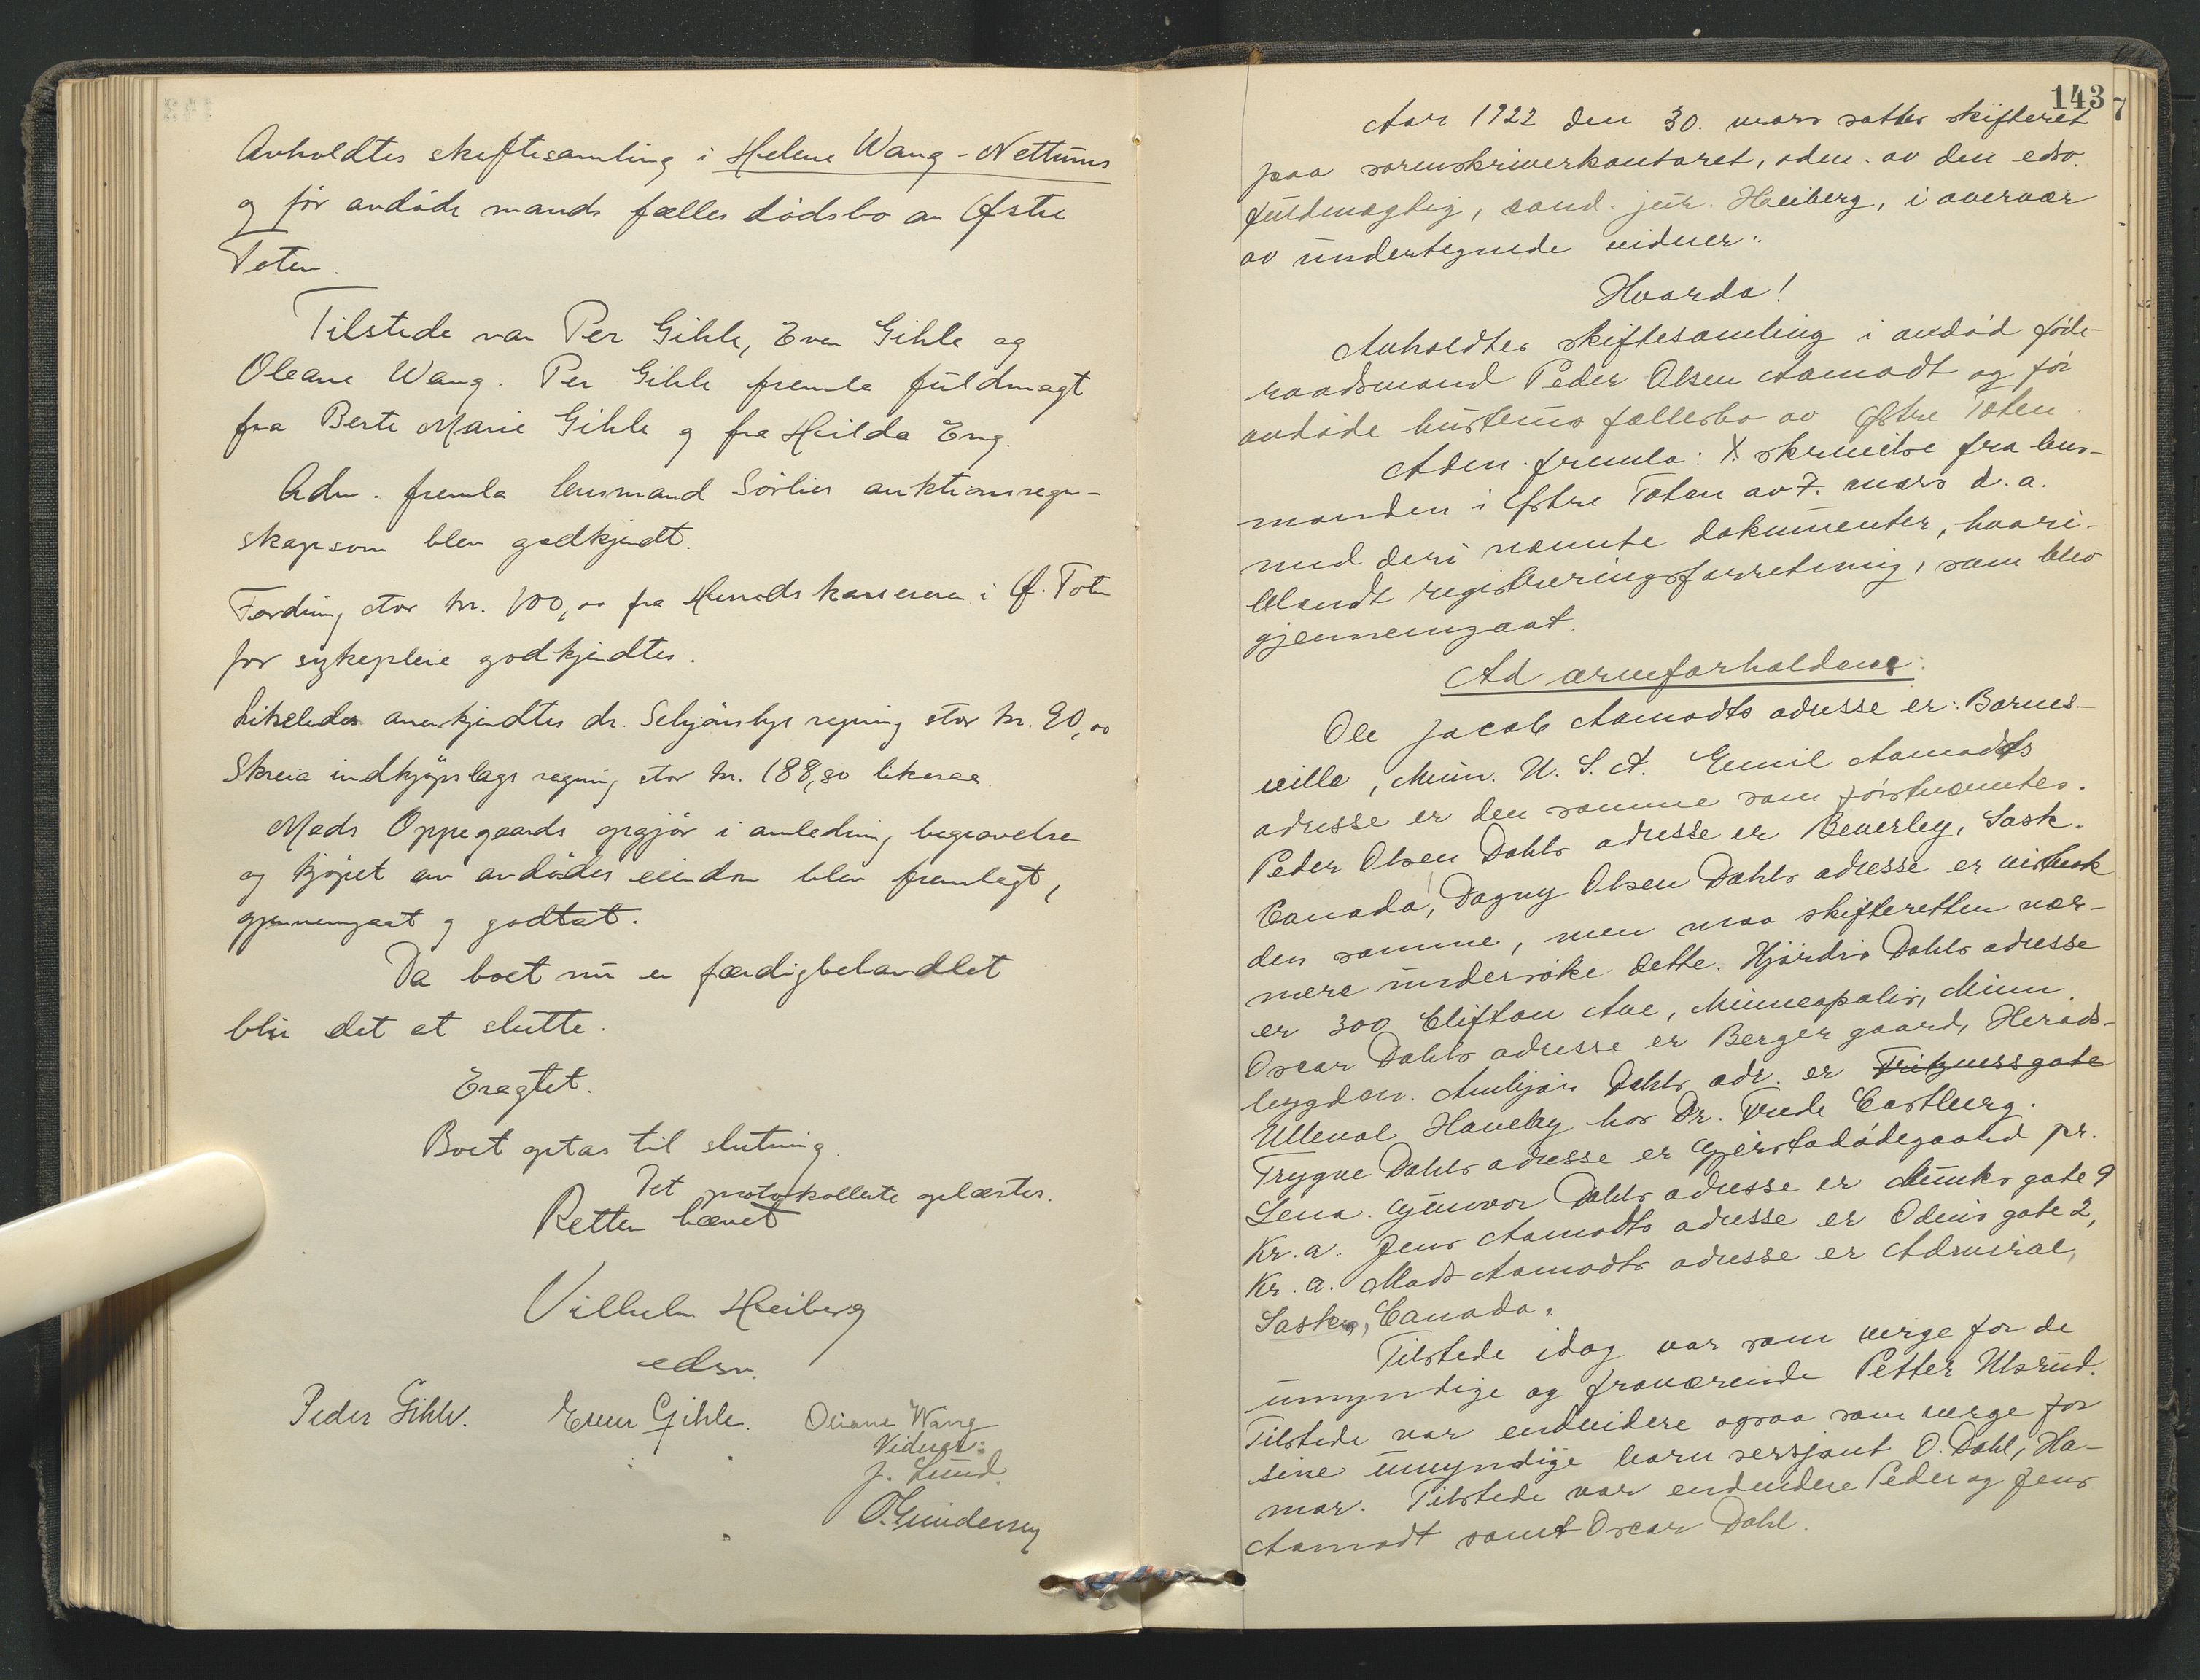 Avholdtes skiftesamling i Helene Wang-Nettums
og før avdøde mands fælles dødsbo av Østre
Toten.
Tilstede var Per Gihle, Even Gihle og
Oleane Wang. Per Gihle fremla fuldmagt
fra Berte Marie Gihle og fra Hilda Eng.
Adm. fremla lensmand Sørlies auktionsregn-
skap som blev godkjendt.
Fordring stor kr. 100,00 fra Herredskassereren i Ø. Toten
for sykepleie godkjendtes.
Likeledes anerkjendtes dr. regning stor kr. 90,00
Skreia indkjøpslags regning stor kr. 188,80 likesaa.
Mads Oppegaards opgjør i anledning begravelsen
og kjøpet av avdødes eiendom blev fremlagt,
gjennemgaat og godtat.
Da boet nu er færdigbehandlet
blir det at slutte.
Eragtet.
Boet optas til slutning.
Det protokollerte oplæstes.
Retten hævet
Vilhelm Heiberg
edsv.
Peder Gihle. Even Gihle. Oleane Wang
Vidner:
J. Lund.
O. Gundersen
143
7
Aar 1922 den 30. mars sattes skifteret
paa sorenskriverkontoret, adm. av den edsv.
fuldmægtig, cand. jur. Heiberg, i overvær
av undertegnede vidner:
Hvorda!
Avholdtes skiftesamling i avdød føde-
raadsmand Peder Olsen Aamodt og før
avdøde hustrus fællesbo av Østre Toten.
Adm. fremla: X. skrivelse fra lens-
manden i Østre Toten av 7. mars d.a.
med deri nævnte dokumenter, hvori-
blandt registreringsforretning, som blev
gjennemgaat.
Ad arveforholdene:
Ole Jacob Aamodts adresse er: Barnes-
ville, Minn. U.S.A. Emil Aamodts
adresse er den samme som førstnævntes.
Peder Olsen Dahls adresse er Beverley, Sask.
Canada, Dagny Olsen Dahls adresse er
den samme, men maa skifteretten nær-
mere undersøke dette. Hjørdis Dahls adresse
er 300 Clifton Ave, Minneapolis, Minn.
Oscar Dahls adresse er Berger gaard, Herads-
bygden. Dahls adr. er
Ullevål Haveby hos Dr. Frede Castberg.
Trygve Dahls adresse er pr.
Lena. Gunvor Dahls adresse er Munks gate 9
Kr.a. Jens Aamodts adresse er Odins gate 2,
Kr.a. Mads Aamodts adresse er Admiral,
Sask., Canada.
Tilstede idag var som verge for de
umyndige og fraværende Petter Ulsrud.
Tilstede var endvidere ogsaa som verge for
sine umyndige barn sersjant O. Dahl, Ha-
mar. Tilstede var endvidere Peder og Jens
Aamodt samt Oscar Dahl.